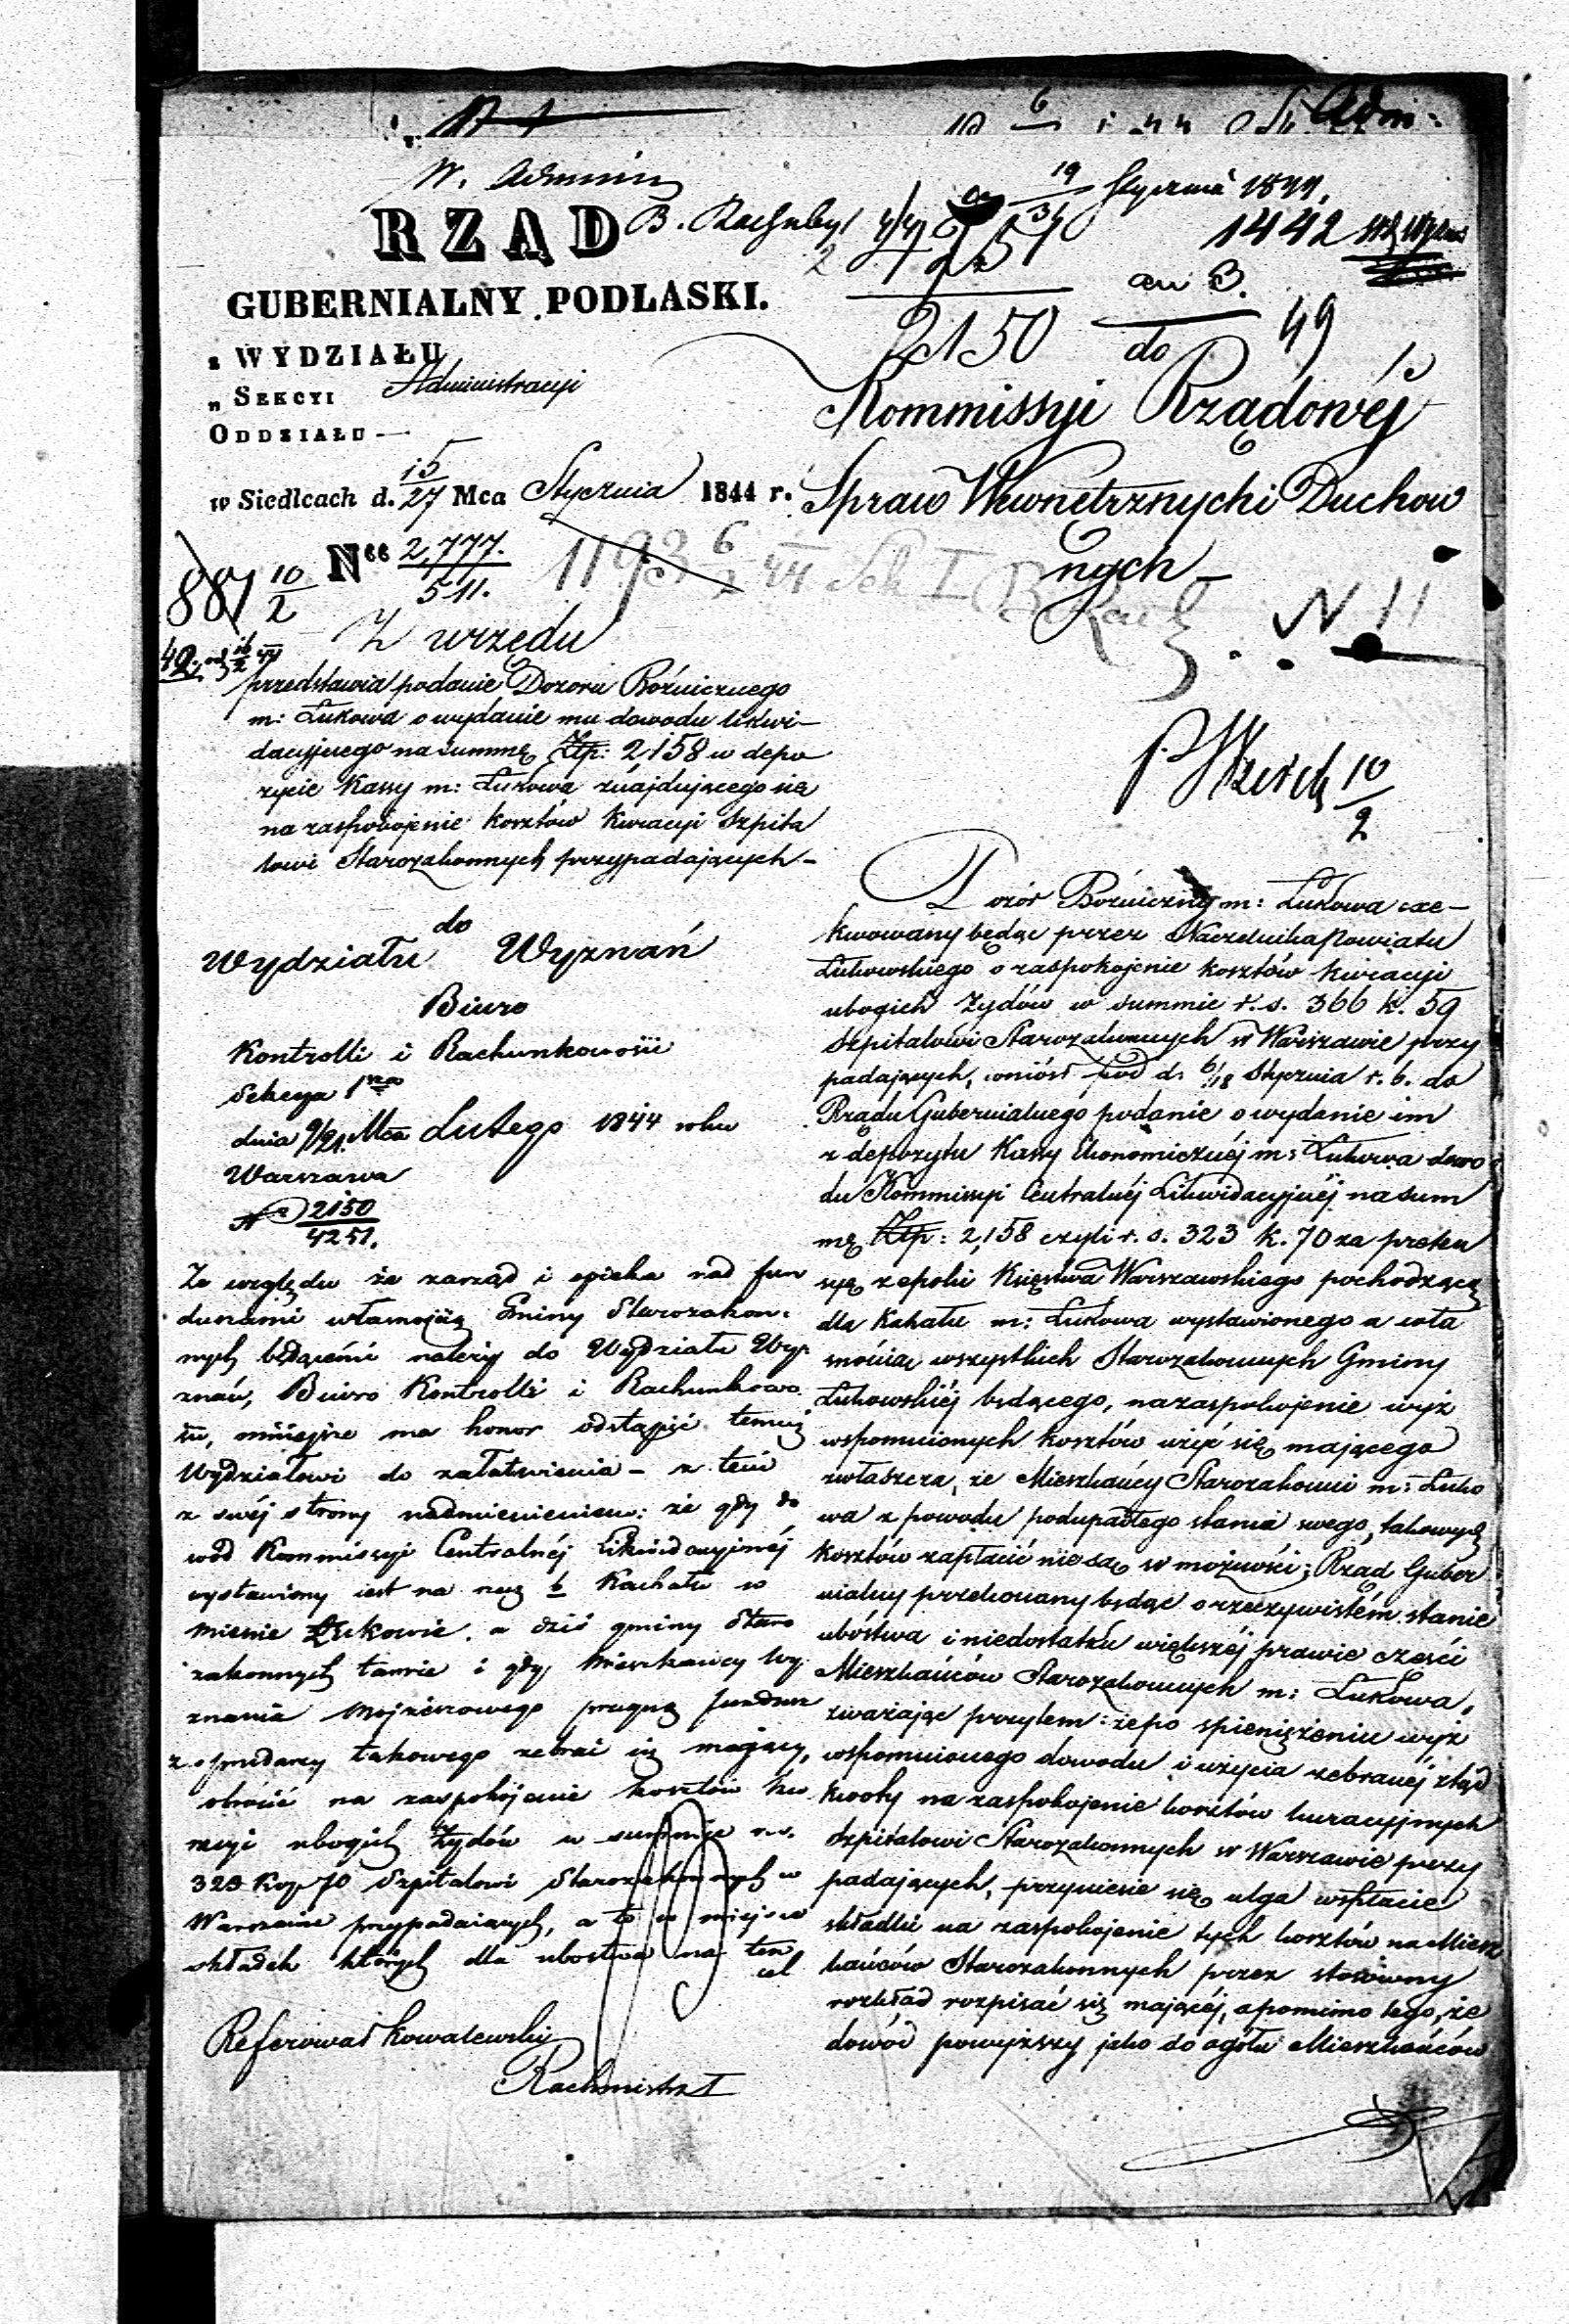 W. Admin
B. Rachuby
19/31 Stycznia 1844.
1442
RZĄD
GUBERNIALNY PODLASKI.
4251
2150
an B.
do 49
z WYDZIAŁU
Administracyi
„ SEKCYI
ODDZIAŁU —
w Siedlcach d. 15/27 Mca Stycznia 1844 r.
Nr 2,777./511.
1193 6/2 44 Sek I
B Rach
887 10/2
40 16/2 44
Z urzędu
przedstawia podanie Dozoru Bóżniczego
m: Łukowa o wydanie mu dowodu likwi–
dacyjnego na summę Złp: 2,158 w depo
zycie Kassy m: Łukowa znajdującego się
na zaspokojenie kosztów Kuracyi Szpita
lowi Starozakonnych przypadających –
Kommissyi Rządowéj
Spraw Wewnętrznych i Duchow
nych
N 11
10/2
do
Wydziału Wyznań
Biuro
Kontrolli i Rachunkowości
Sekcya 1sza
dnia 9/21. Mca Lutego 1844 roku
Warszawa
No 2150/4251.
Ze względu że zarząd i opieka nad fun
duszami własnością Gminy Starozakon:
nych będącemi należy do Wydziału Wy
znań, Biuro Kontrolli i Rachunkowo
ści, niniejsze ma honor odstąpić temuż
Wydziałowi do załatwienia – z tem
z swéj strony nadmienieniem: że gdy do
wód Kommissyi Centralnéj Likwidacyjnéj
wystawiony jest na rzecz b Kachału w
mieście Łukowie, a dziś gminy Staro
zakonnych tamże i gdy Mieszkańcy Wy
znania Mojżeszowego pragną fundusz
z sprzedarzy takowego zebrać się mający,
obrócić na zaspokojenie kosztów ku
racyi ubogich Żydów w summie r.s.
323 kop 70 Szpitalowi Starozakonnych w
Warszawie przypadających, a to w miejsce
składek których dla ubóstwa na ten
cel
Referował Kowalewski
Rachmistrz
Dozór Bóżniczny m: Łukowa exe–
kwowany będąc przez Naczelnika Powiatu
Łukowskiego o zaspokojenie kosztów kuracyi
ubogich Żydów w summie r. s. 366 k. 59
Szpitalowi Starozakonnych w Warszawie przy
padających, wniósł pod d. 6/18 Stycznia r. b. do
Rządu Gubernialnego podanie o wydanie im
z depozytu Kassy Ekonomicznéj m: Łukowa dowo
du Kommissyi Centralnéj Likwidacyjnéj na sum
mę Złp: 2,158 czyli r. s. 323 k. 70 za preten
syę z epoki Księstwa Warszawskiego pochodzącą
dla Kahału m: Łukowa wystawionego a wła
snością wszystkich Starozakonnych Gminy
Łukowskiéj będącego, na zaspokojenie wyż
wspomnionych kosztów użyć się mającego
zwłaszcza, że Mieszkańcy Starozakonni m: Łuko
wa z powodu podupadłego stanu swego, takowych
kosztów zapłacić nie są w możności; Rząd Guber
nialny przekonany będąc o rzeczywistém stanie
ubóstwa i niedostatku większéj prawie części
Mieszkańców Starozakonnych m: Łukowa,
zważając przytem: że po spieniężeniu wyż
wspomnionego dowodu i użycia zebranéj ztąd
kwoty na zaspokojenie kosztów kuracyjnych
Szpitalowi Starozakonnych w Warszawie przy
padających, przyniesie się ulga w spłacie
składki na zaspokojenie tych kosztów na Miesz
kańców Starozakonnych przez stosowny
rozkład rozpisać się mającéj, a pomimo tego, że
dowód powyższy jako do ogółu Mieszkańców